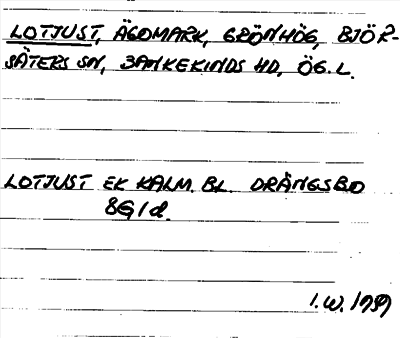 LOTJUST, ÄGOMARK, GRÖNHÖG, BJÖR-
SÄTERS SN, BANKEKINDS HD, ÖG.L.
LOTJUST EK KALM. BL. DRÄNGSBO
8G1d.
I.W. 1959